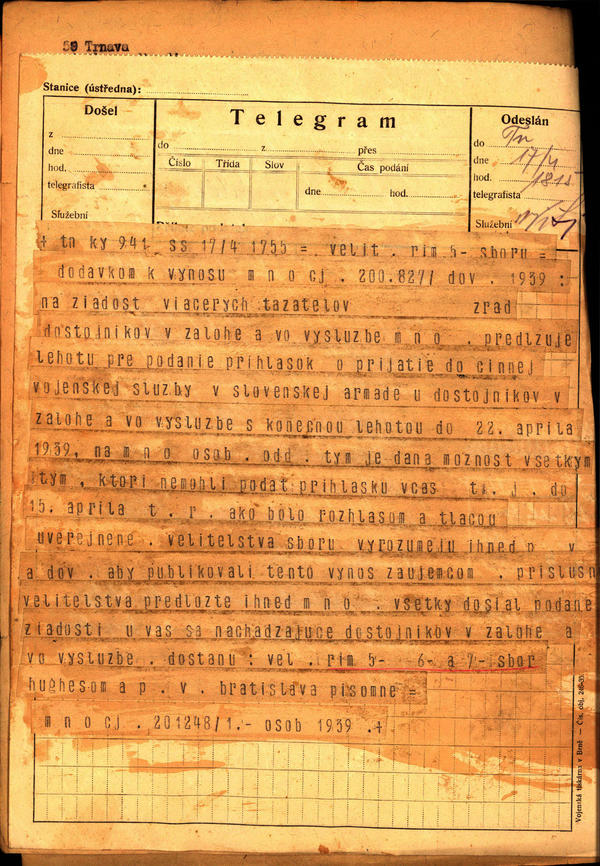 59 Trnava
Stanice (ústředna):
Došel
Telegram
Odeslán
z
do z přes
do Tn
dne
Číslo Třída Slov Čas podání
dne 17/4
hod.
dne hod.
hod. 1815
telegrafista
telegrafista
Služební
Služební
+ tn ky 941 ss 17/4 1755 = velit . rim 5- sboru =
dodavkom k vynosu m n o cj . 200.827/ dov . 1939 :
na ziadost viacerych tazatelov zrad
dostojnikov v zalohe a vo vysluzbe m n o . predlzuje
lehotu pre podanie prihlasok o prijatie do cinnej
vojenskej sluzby v slovenskej armade u dostojnikov v
zalohe a vo vysluzbe s konecnou lehotou do 22. aprila
1939, na m n o osob . odd . tym je dana moznost vsetkym
tym , ktori nemohli podat prihlasku vcas t. j . do
15. aprila t . r . ako bolo rozhlasom a tlacou
uverejnene . velitelstva sboru vyrozumeju ihned p v
a dov . aby publikovali tento vynos zaujemcom . prislusn
velitelstva predlozte ihned m n o . vsetky dosial podane
ziadosti u vas sa nachadzajuce dostojnikov v zalohe a
vo vysluzbe . dostanu : vel . rim 5- 6- a 7- sbor
hughesom a p . v . bratislava pisomne =
m n o cj . 201248/1.- osob 1939 .+
Vojenská tiskárna v Brně — Čís. obj.